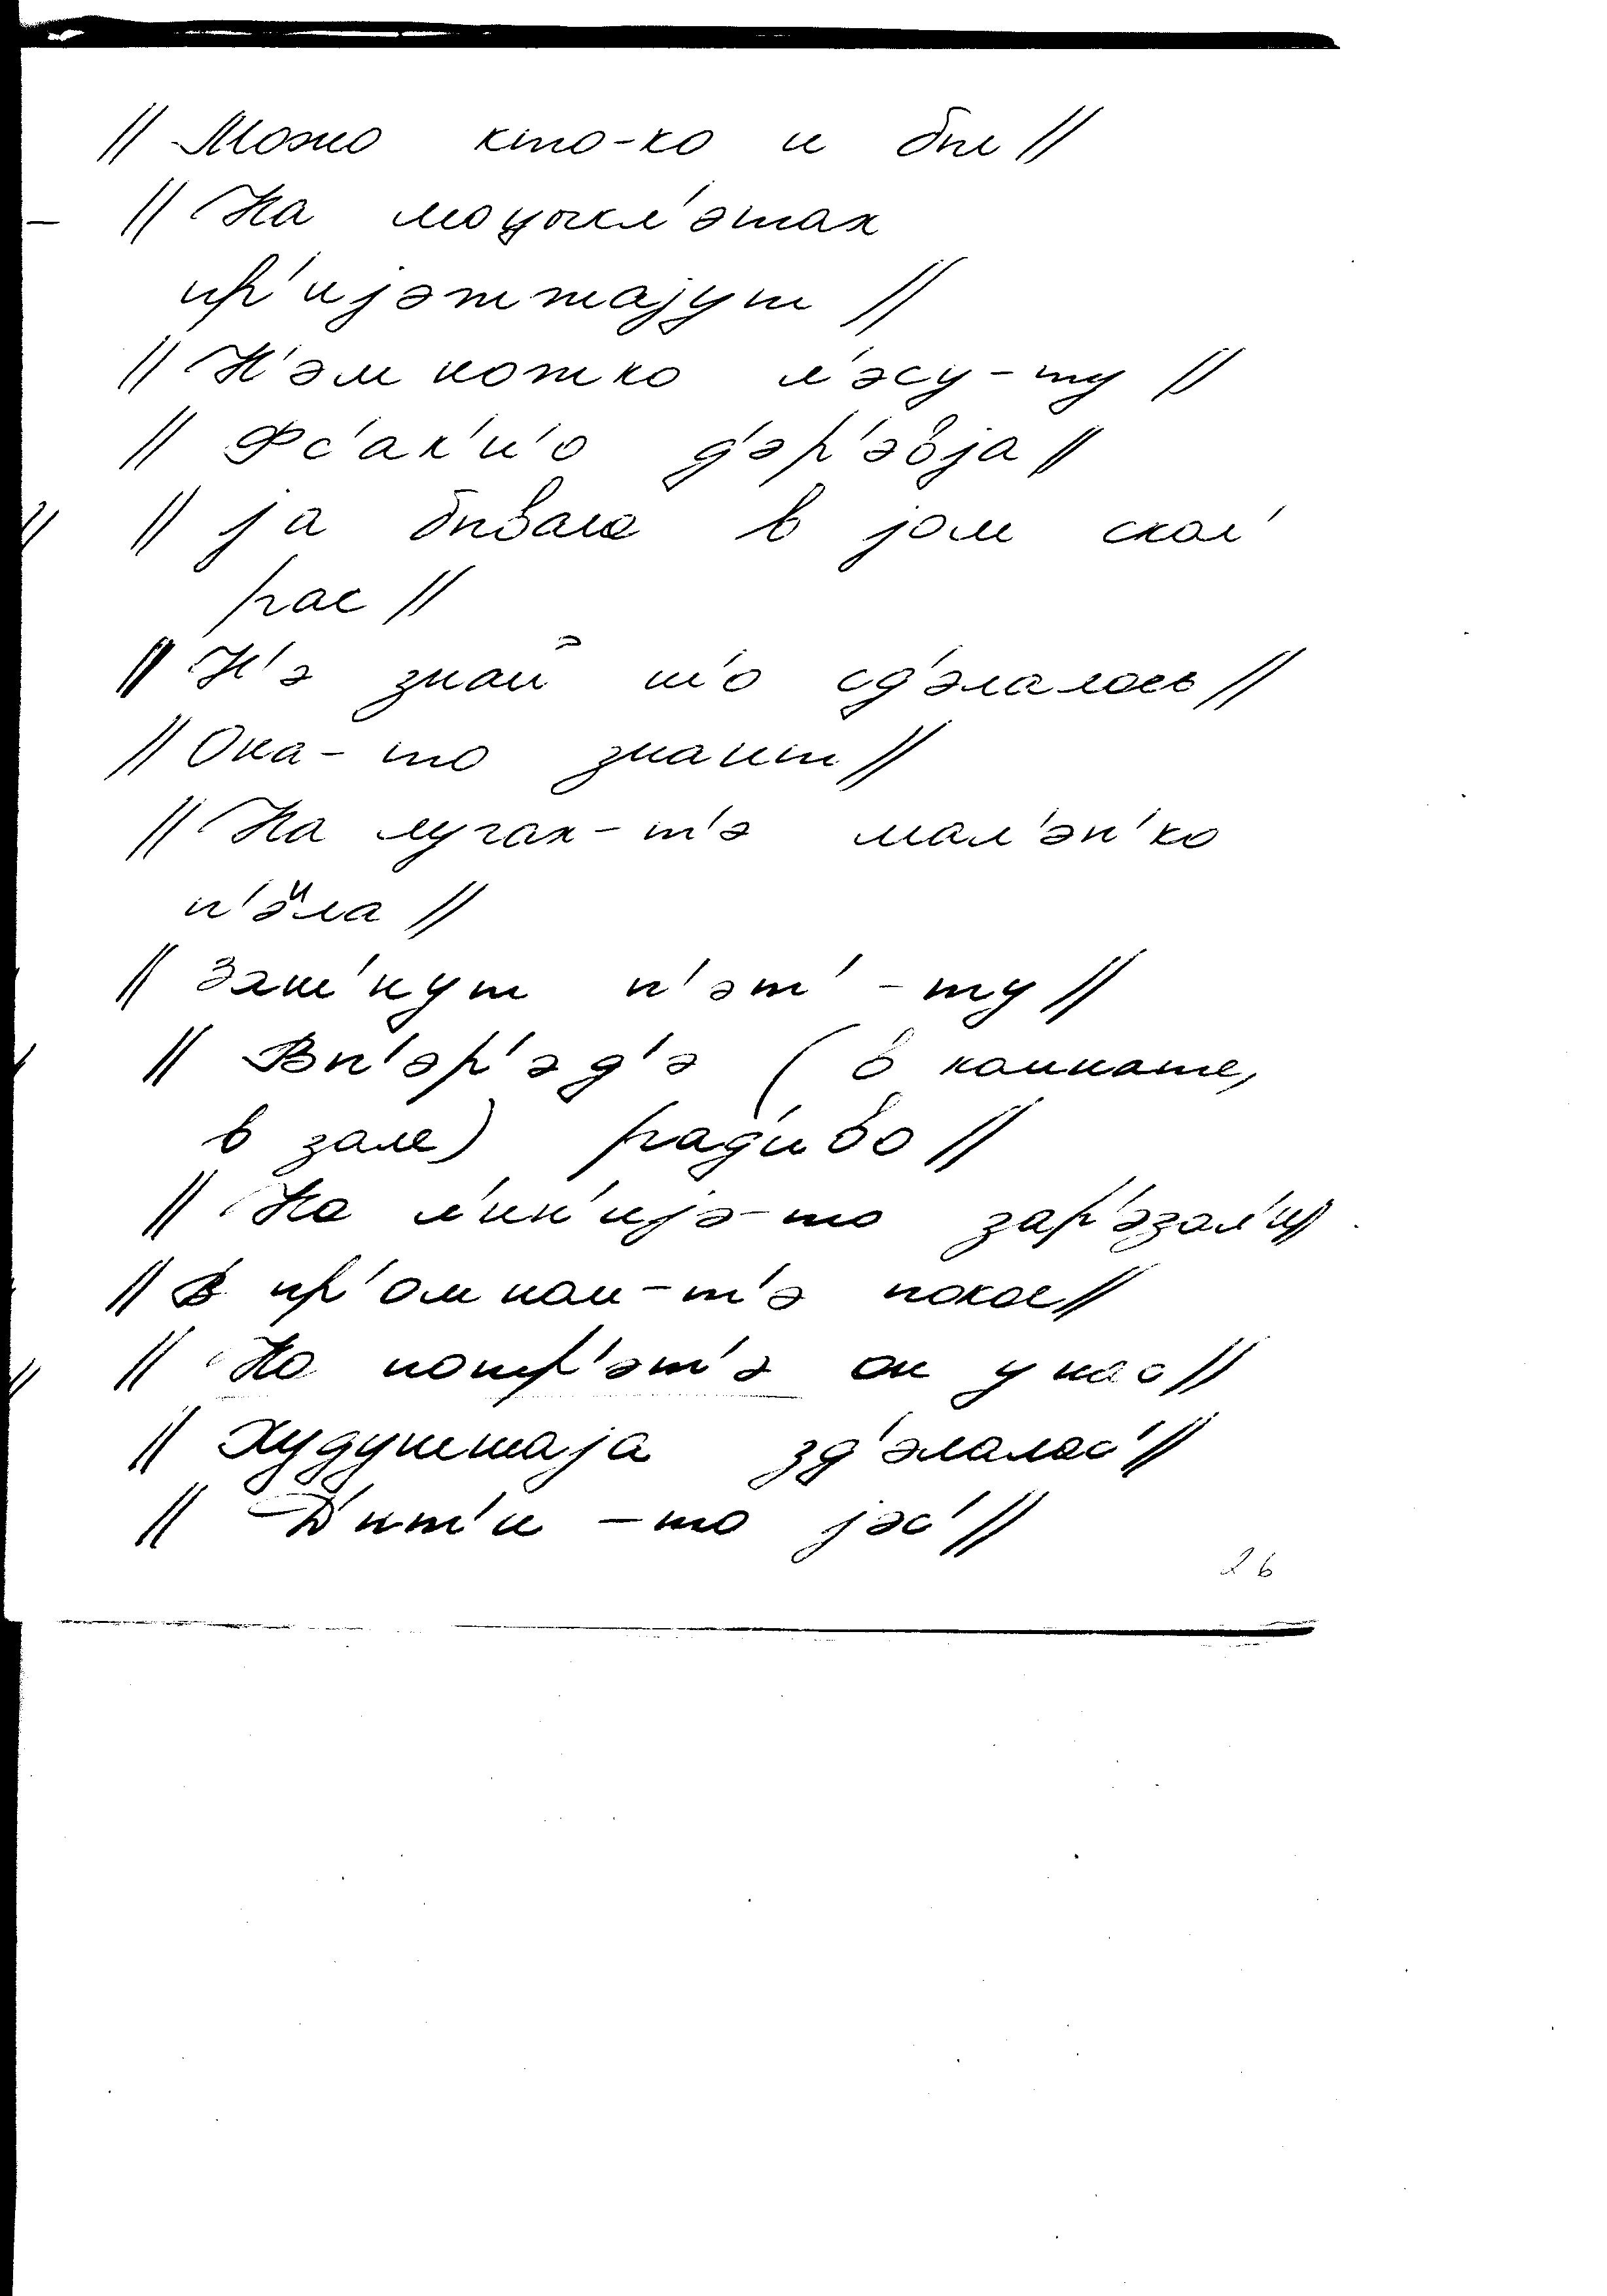 // Можо кто-ко и был //
// На моцыкл'этах
пр'ијэжжајут //
// Н'эмножко л'эсу-ту //
// Фс'ак'и'о д'эр'эвја //
// ја бываю в јом скол'
рас //
// Н'э знай што сд'элалось //
// Она-то знаит //
// На лугах-т'э мал'эн'ко
п'э^и ла //
// Зат'нут п'эт'-ту //
// Вп'эр'эд'э (в комнате,
в зале) рад'иво //
// На л'ин'ијэ-то зар'эзал'и //
// В пр'омном-т'э покое //
// На потр'эт'э он у нас //
// Худушшаја зд'элалас' //
// Д'ит'и-то јэс' //
26